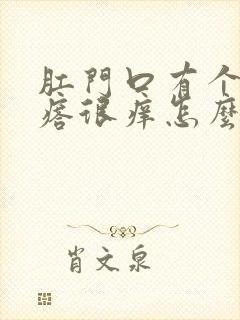 肛門口有个
痞很痒怎麼
肖文泉